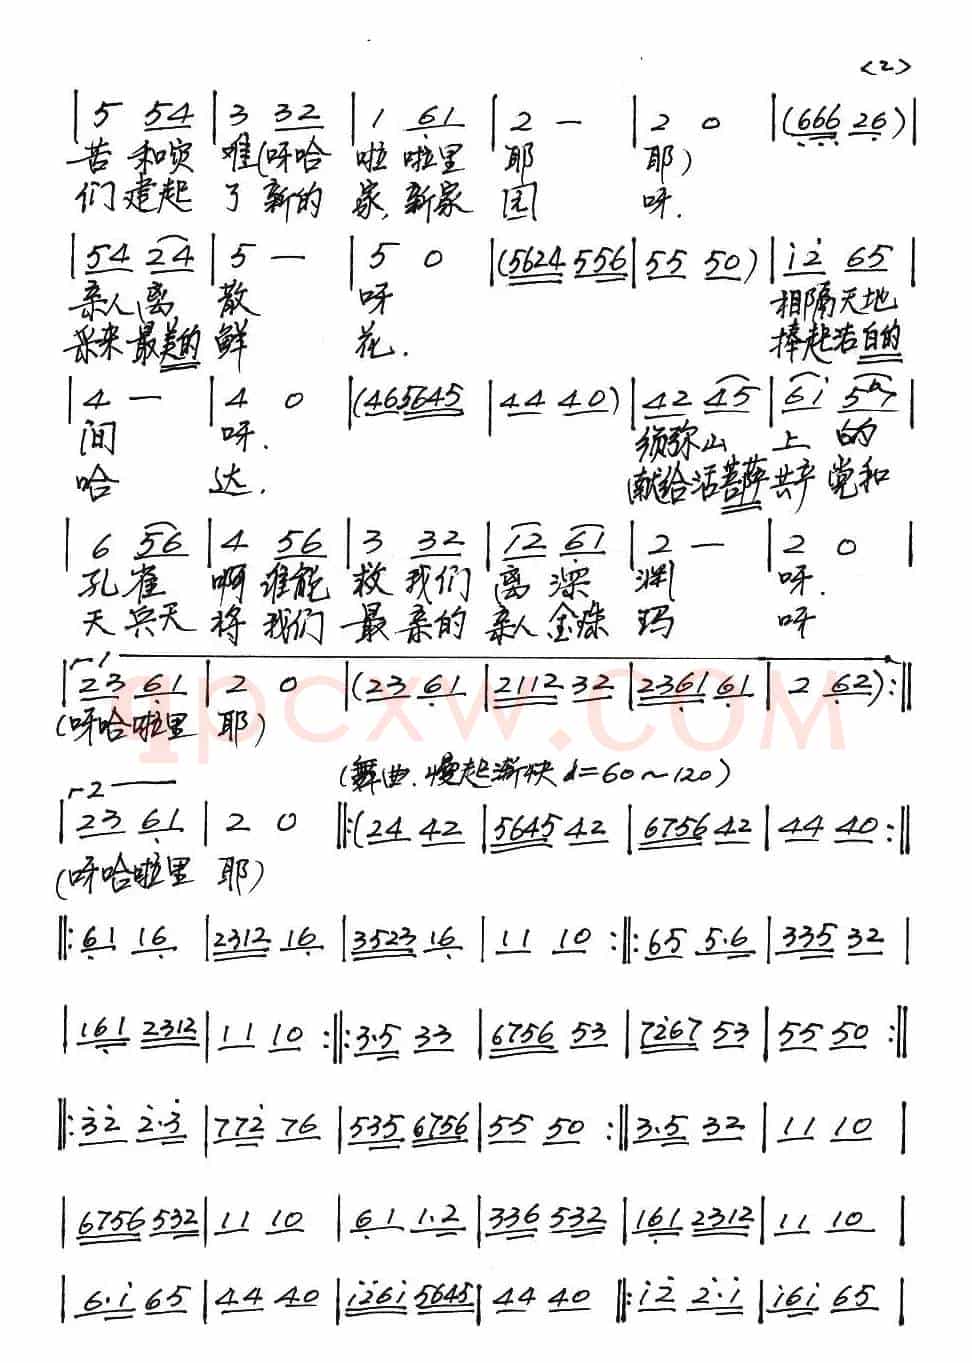 <2>
| 5 54 | 3 32 | 1 61 | 2 — | 2 0 | (666 26) |
苦 和灾 难(呀哈 啦 啦里 耶 耶)
们 建起 了 新的 家,新家 园 呀.
| 54 24 | 5 — | 5 0 | (5624 556 | 55 50) | i2 65 |
亲人(离) 散 呀 相隔天地
采来最美的 鲜 花. 捧起洁白的
| 4 — | 4 0 | (465645 | 44 40) | 42 45 | 61 5 7
间 呀. 须弥山 上 的
哈 达. 献给活菩萨 共产党和
| 6 56 | 4 56 | 3 32 | 12 61 | 2 — | 2 0 |
孔雀 啊 谁能 救 我们 离 深 渊 呀.
天 兵天 将 我们 最 亲的 亲人 金珠 玛 呀
1
| 23 61 | 2 0 | (23 61 | 2112 32 | 2361 61 | 2 62) :||
(呀哈啦里 耶)
qpcxw.com
(舞曲.慢起渐快♩=60~120)
2
| 23 61 | 2 0 ||: (24 42 | 5645 42 | 6756 42 | 44 40 :||
(呀哈啦里 耶)
||: 61 16 | 2312 16 | 3523 16 | 11 10 :||: 65 5·6 | 335 32 |
| 161 2312 | 11 10 :||: 3·5 33 | 6756 53 | 7267 53 | 55 50 :||
||: 32 2·3 | 772 76 | 535 6756 | 55 50 :|| 3·5 32 | 11 10 |
| 6756 532 | 11 10 | 61 1·2 | 336 532 | 161 2312 | 11 10 |
| 6·i 65 | 44 40 | i26i 5645 | 44 40 ||: i2 2·i | i6i 65 |